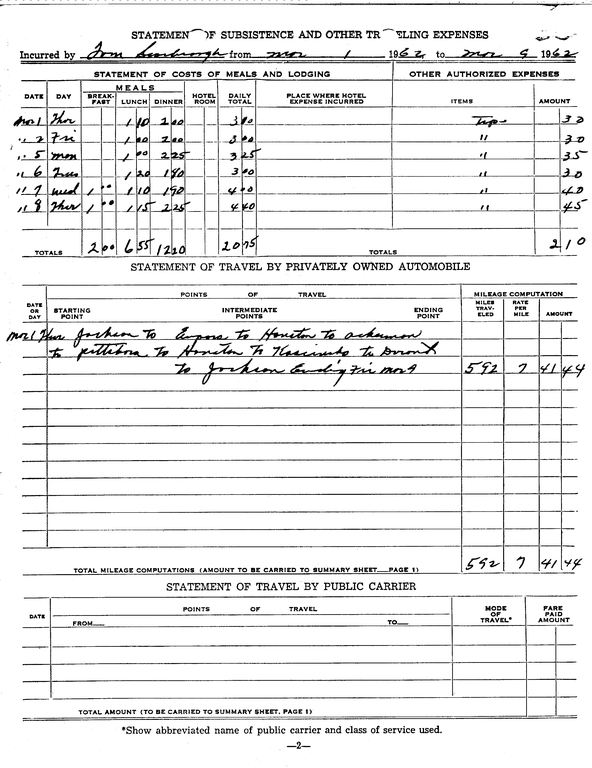 STATEMENT OF SUBSISTENCE AND OTHER TRAVELING EXPENSES
Incurred by Tom Scarbrough from Mar 1 1962 to Mar 9 1962
STATEMENT OF COSTS OF MEALS AND LODGING OTHER AUTHORIZED EXPENSES
DATE DAY MEALS BREAK-FAST LUNCH DINNER HOTEL ROOM DAILY TOTAL PLACE WHERE HOTEL EXPENSE INCURRED ITEMS AMOUNT
Mar 1 Thur 1 10 2 00 3 00 Tips 30
" 2 Fri 1 00 2 00 3 00 " 30
" 5 Mon 1 00 2 25 3 25 " 35
" 6 Tues 1 20 1 80 3 00 " 30
" 7 Wed 1 00 1 10 1 90 4 00 " 40
" 8 Thur 1 00 1 15 2 25 4 40 " 45
TOTALS 2 00 6 55 12 20 20 75 TOTALS 2 10
STATEMENT OF TRAVEL BY PRIVATELY OWNED AUTOMOBILE
DATE OR DAY POINTS OF TRAVEL MILEAGE COMPUTATION
STARTING POINT INTERMEDIATE POINTS ENDING POINT MILES TRAV-ELED RATE PER MILE AMOUNT
Mar 1 Thur Jackson to Eupora to Houston to Ackerman
to Pittsboro to Houston to Kosciusko to Durant
to Jackson Ending Fri Mar 9 592 7 41 44
TOTAL MILEAGE COMPUTATIONS (AMOUNT TO BE CARRIED TO SUMMARY SHEET PAGE 1) 592 7 41 44
STATEMENT OF TRAVEL BY PUBLIC CARRIER
DATE POINTS OF TRAVEL MODE OF TRAVEL* FARE PAID AMOUNT
FROM TO
TOTAL AMOUNT (TO BE CARRIED TO SUMMARY SHEET, PAGE 1)
*Show abbreviated name of public carrier and class of service used.
—2—